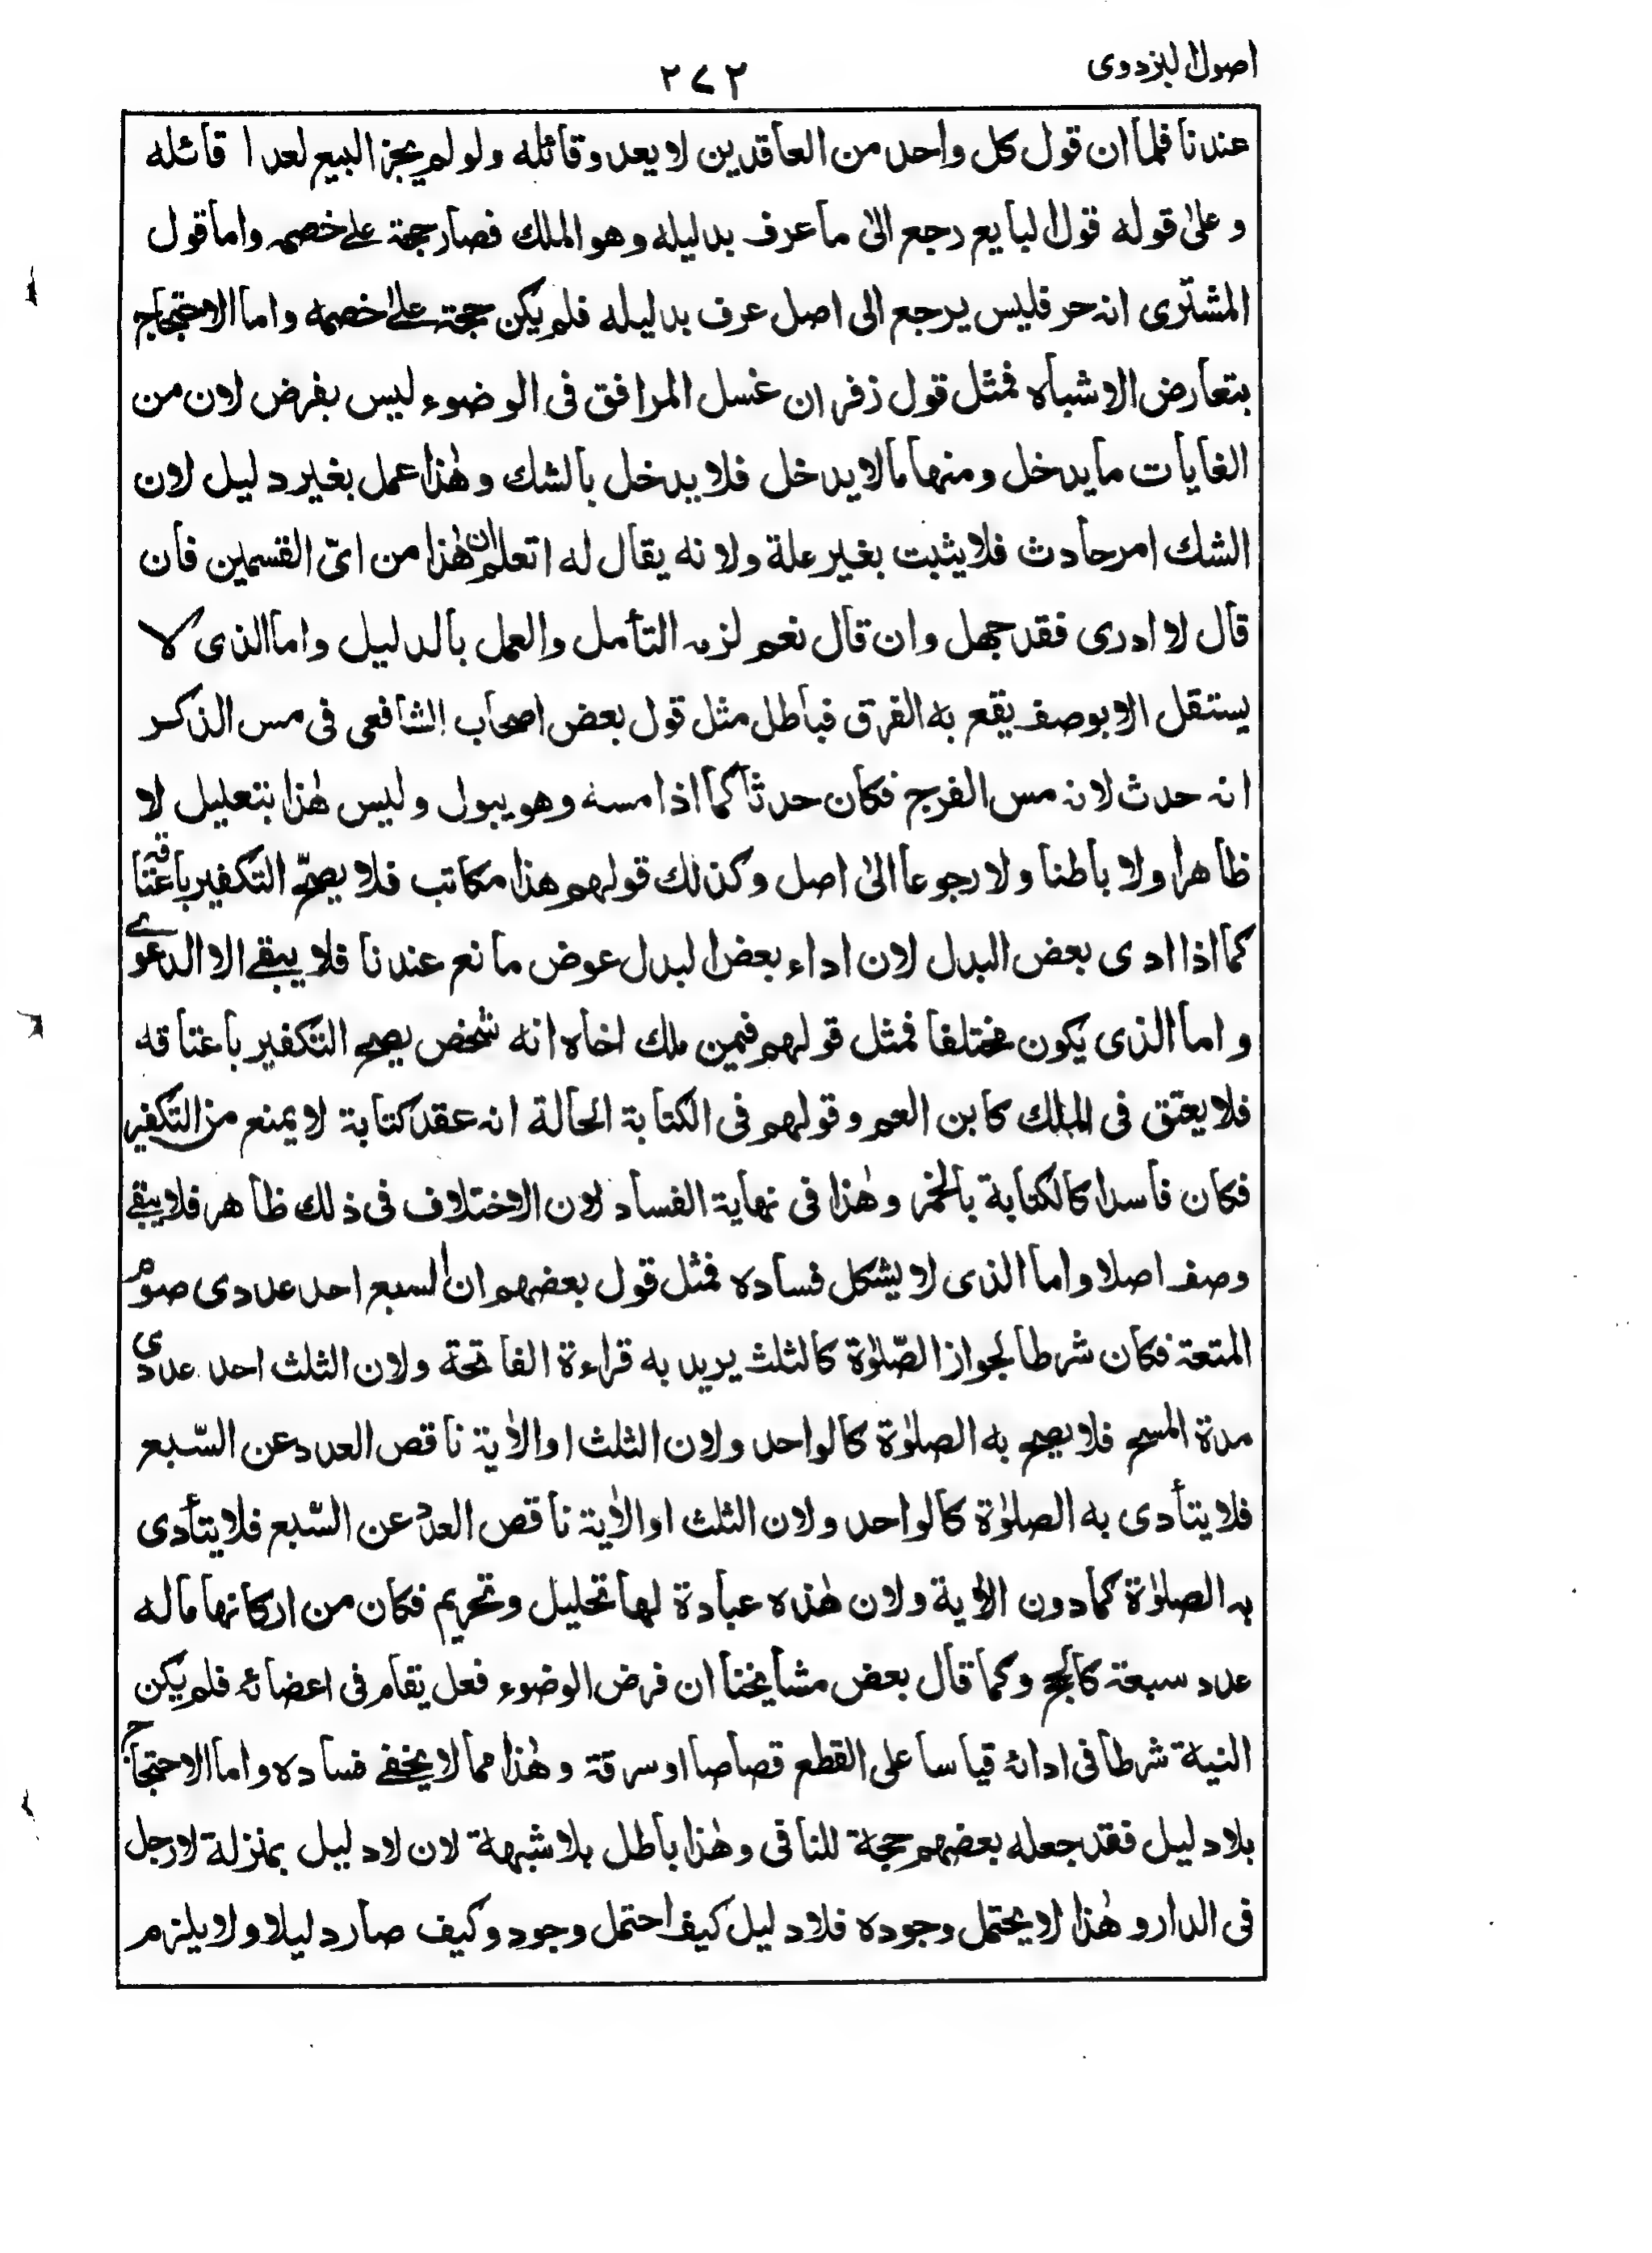 اصول البزدوى
٢٧٢
عندنا فلما ان قول كل واحد من العاقدين لا يعدو قائله ولو لم يجز البيع لعدا قائله
وعلىٰ قوله قول البايع رجع الىٰ ما عرف بدليله وهو الملك فصار حجة على خصمه واما قول
المشترى انه حر فليس يرجع الى اصل عرف بدليله فلم يكن حجة علىٰ خصمه واما الاحتجاج
بتعارض الاشباه فمثل قول زفر ان غسل المرافق فى الوضوء ليس بفرض لان من
الغايات ما يدخل ومنها ما لا يدخل فلا يدخل بالشك وهٰذا عمل بغير دليل لان
الشك امر حادث فلا يثبت بغير علة ولانه يقال له اتعلم ان هٰذا من اىّ القسمين فان
قال لا ادرى فقد جهل وان قال نعم لزمه التأمل والعمل بالدليل واما الذى لا
يستقل الا بوصف يقع به الفرق فباطل مثل قول بعض اصحاب الشافعى فى مس الذكر
انه حدث لانه مس الفرج فكان حدثا كما اذا مسه وهو يبول وليس هٰذا بتعليل لا
ظاهرا ولا باطنا ولا رجوعا الىٰ اصل وكذلك قولهم هذا مكاتب فلا يصحّ التكفير باعتاقه
كما اذا ادى بعض البدل لان اداء بعض البدل عوض مانع عندنا فلا يبقى الا الدعوے
واما الذى يكون مختلفا فمثل قولهم فيمن ملك اخاه انه شخص يصح التكفير باعتاقه
فلا يعتق فى الملك كابن العم وقولهم فى الكتابة الحالة انه عقد كتابة لا يمنع من التكفير
فكان فاسدا كالكتابة بالخمر وهٰذا فى نهاية الفساد لان الاختلاف فى ذلك ظاهر فلا يبقى
وصف اصلا واما الذى لا يشكل فساده فمثل قول بعضهم ان السبع احد عددى صوم
المتعة فكان شرطا لجواز الصّلوٰة كالثلث يريد به قراءة الفاتحة ولان الثلث احد عددى
مدة المسح فلا يصح به الصلوٰة كالواحد ولان الثلث او الاٰية ناقص العدد عن السّبع
فلا يتأدى به الصلوٰة كالواحد ولان الثلث او الاٰية ناقص العدد عن السّبع فلا يتأدى
به الصلوٰة كما دون الاٰية ولان هٰذه عبادة لها تحليل وتحريم فكان من اركانها ما له
عدد سبعة كالحج وكما قال بعض مشايخنا ان فرض الوضوء فعل يقام فى اعضائه فلم يكن
النية شرطا فى ادائه قياسا على القطع قصاصا او سرقة وهٰذا مما لا يخفے فساده واما الاحتجاج
بلا دليل فقد جعله بعضهم حجة للنافى وهٰذا باطل بلا شبهة لان لا دليل بمنزلة لا رجل
فى الدار وهٰذا لا يحتمل وجوده فلا دليل كيف احتمل وجود وكيف صار دليلا ولا يلزم